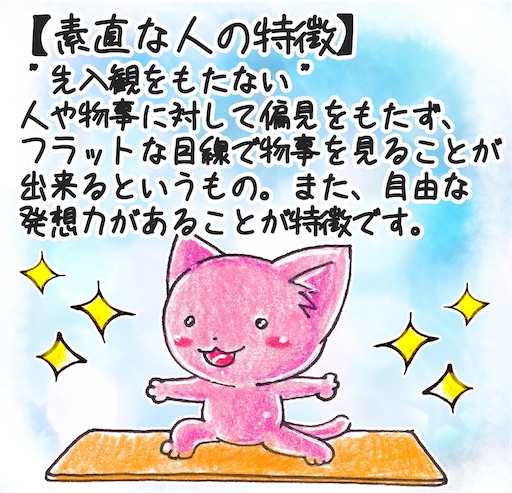 【素直な人の特徴】
"先入観をもたない"
人や物事に対して偏見をもたず、
フラットな目線で物事を見ることが
出来るというもの。また、自由な
発想力があることが特徴です。